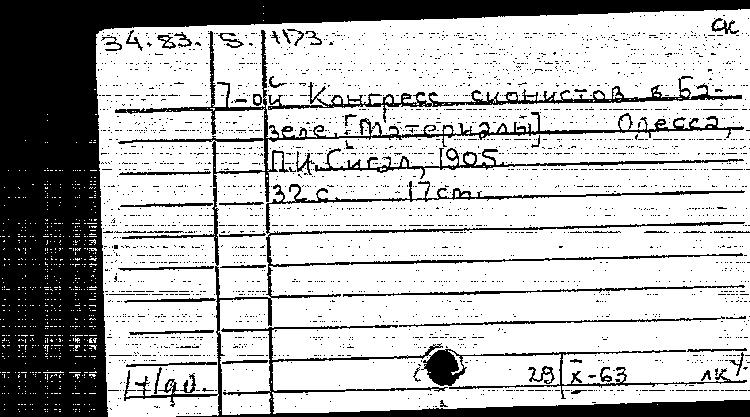 ск
34.83. S. 1173.
7-ой Конгресс сионистов в Ба-
зеле. [Материалы] Одесса,
П.И. Сигал, 1905.
32 с. 17 cm.
29 | X-63 лк